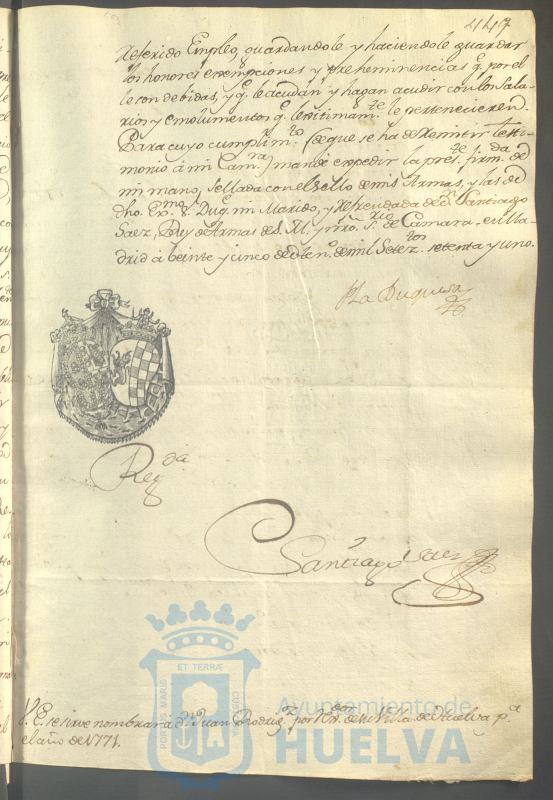 447
referido Empleo, guardandole y haciendole guardar
los honores exempciones y preheminencias q.e por el
le son debidas, y q.e le acudan y hagan acudir con los Sala-
rios y emolumentos q.e lexitimam.te le pertenecieren.
Para cuyo cumplim.to (de que se ha de remitir testi-
monio á mi Cam.ra) mandé expedir la pres.te firm.da de
mi mano, sellada con el Sello de mis Armas, y las de
dho. Ex.mo S.r Duq.e mi Marido, y refrendada de D.n Santiago
Saez, Rey de Armas de S.M. y nrô. S.rio de Camara. en Ma-
drid á beinte y cinco de de mil Setez.tos setenta y uno.
La Duquesa
Reg.da
Santiago Saez
V.E. se sirve nombrar á D.n Juan Rodrig.z por de su Villa de Huelva p.a
el año de 1771.
PORTUS MARIS ET TERRÆ CUSTODIA
Ayuntamiento de
HUELVA